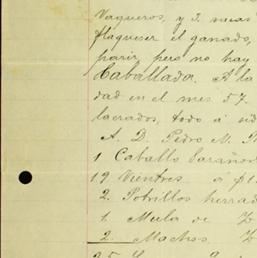 Vaqueros, y 2. vacas
flaqueser el ganado,
parir, pero no hay
Caballada. A la
dad en el mes 57.
lacrados, todo á
A. D. Pedro M.
1 Caballo
19 Vientres á $1
2. Potrillos herrad
1 Mula de
2. Machos.